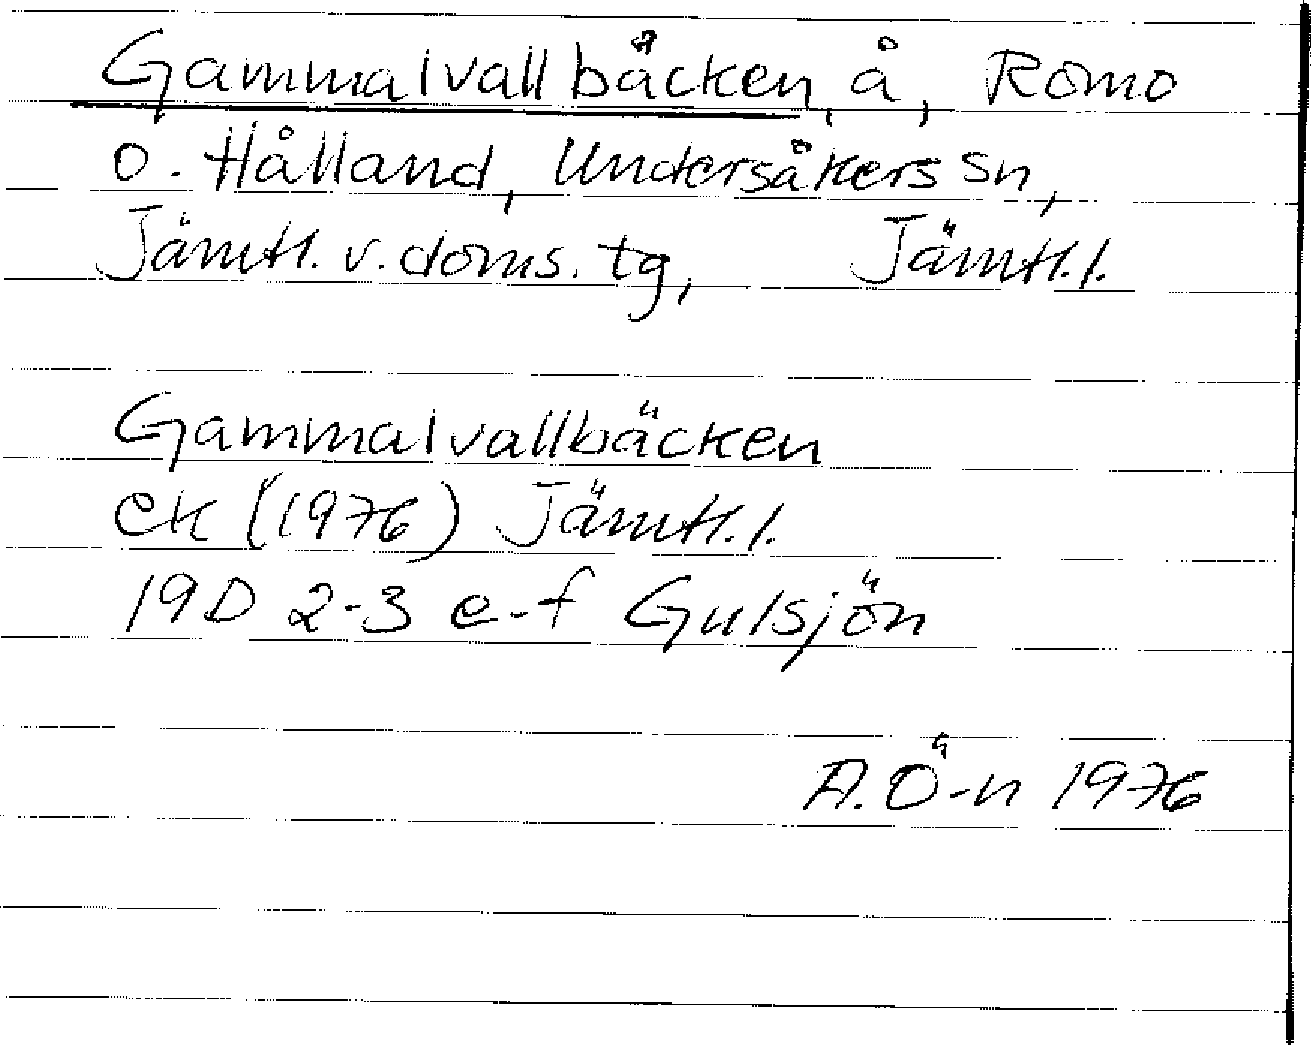 Gammalvallbäcken, å, Romo
o. Hålland, Undersåkers sn,
Jämtl. v. doms. tg, Jämtl. l.
Gammalvallbäcken
ek (1976) Jämtl. l.
19D 2-3 e-f Gulsjön
A. Ö-n 1976